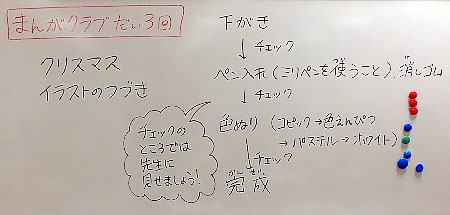 まんがクラブだい3回
クリスマス
イラストのつづき
下がき
↓チェック
ペン入れ(ミリペンを使うこと)、消しゴム
↓チェック
色ぬり(コピック→色えんぴつ
→パステル→ホワイト)
↓チェック
完成
かんせい
チェックの
ところでは
先生に
見せましょう!